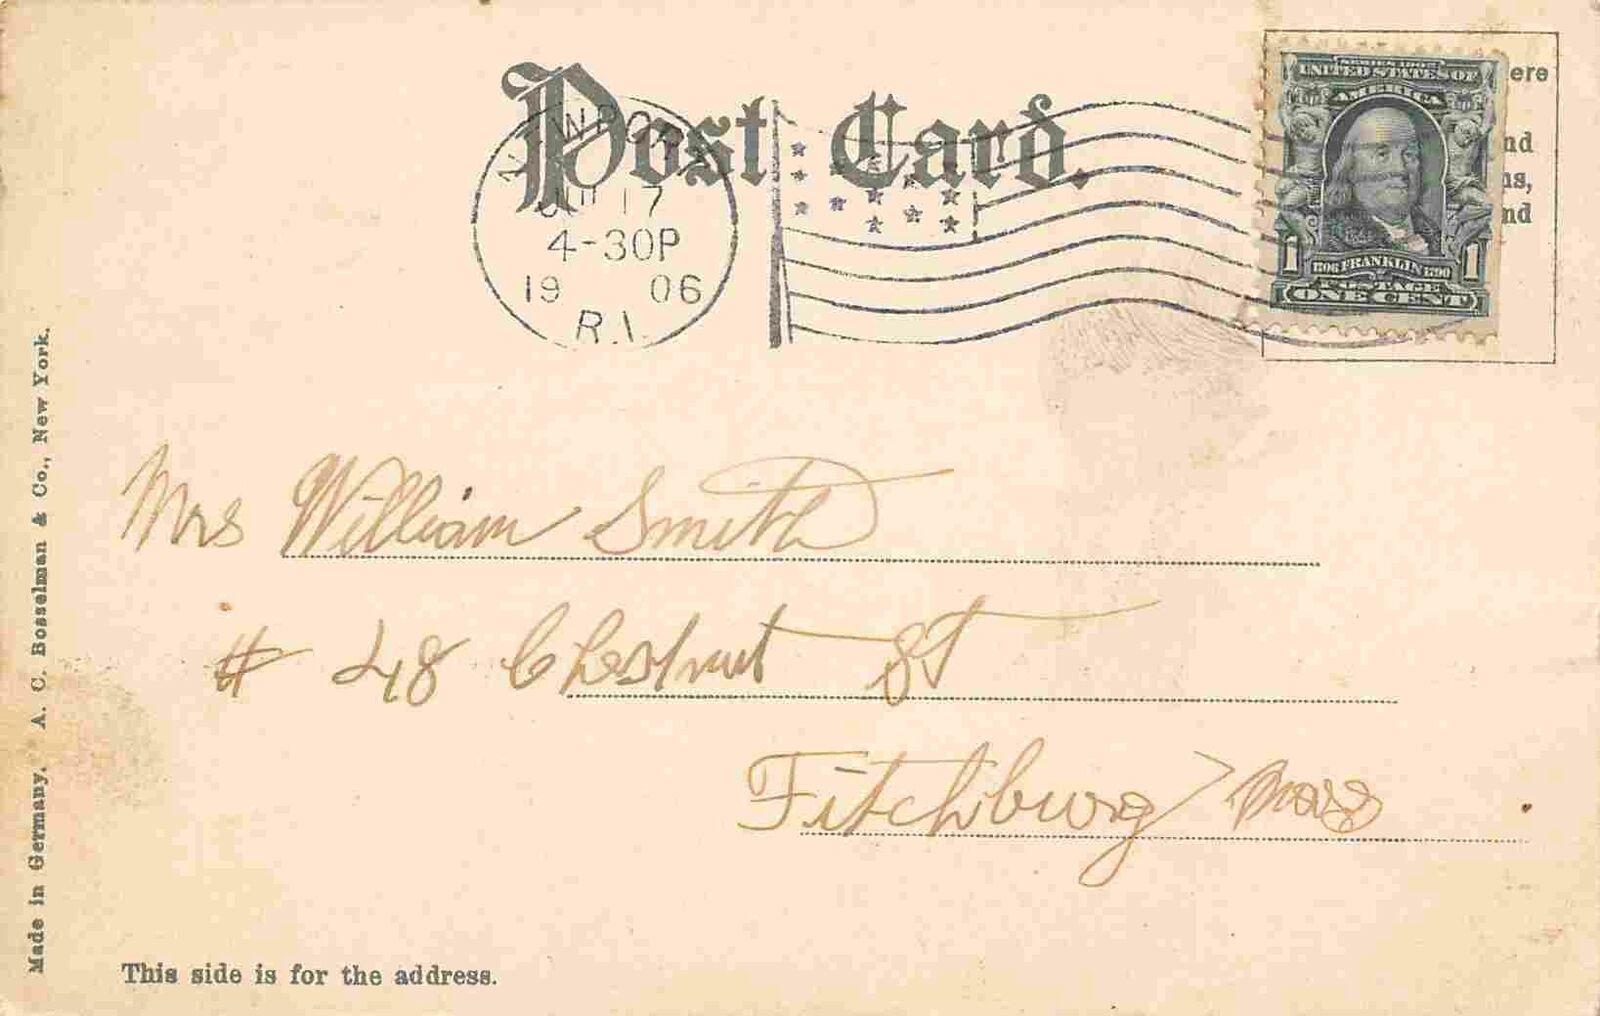 Post Card.
JUL 17
4-30P
19 06
R.I.
SERIES 1902
UNITED STATES OF
AMERICA
1706 FRANKLIN 1790
POSTAGE
1 ONE CENT 1
ere
nd
ns,
nd
Mrs William Smith
# 48 Chestnut St
Fitchburg Mass
This side is for the address.
Made in Germany. A. C. Bosselman & Co., New York.